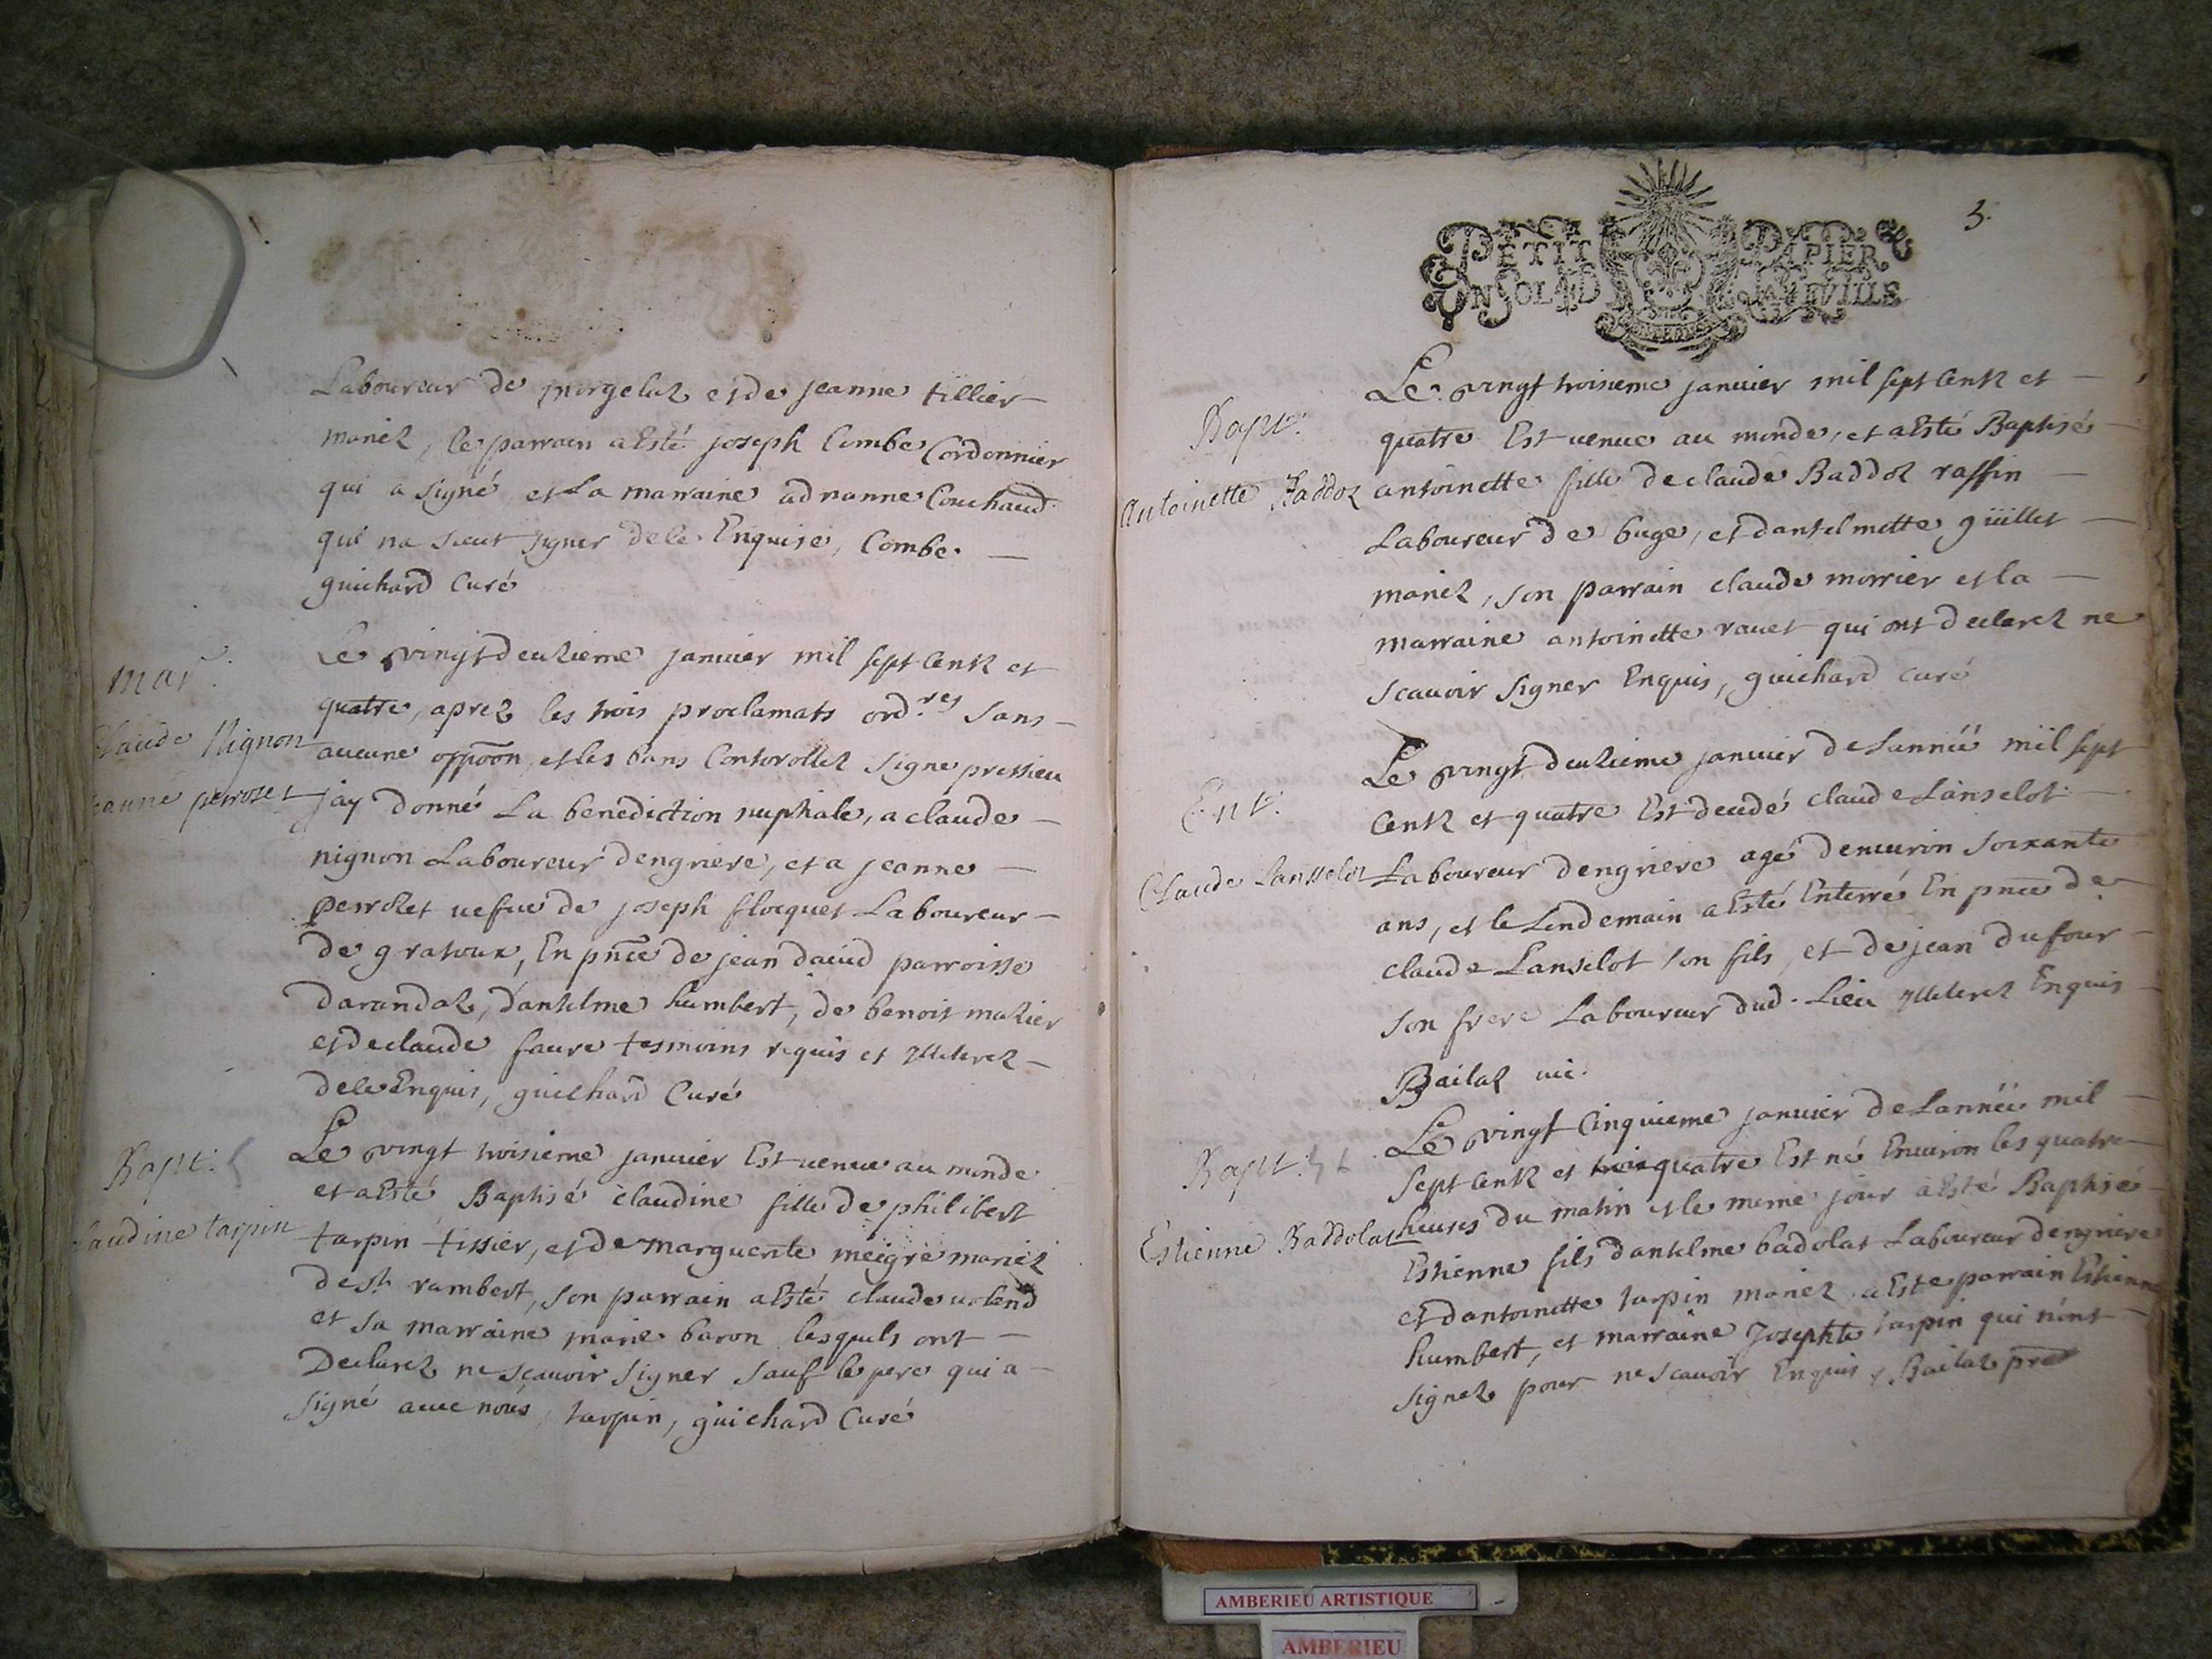 Laboureur de morgeluz et de jeanne tillier
mariez, le parrain a Esté joseph Combe Cordonnier
qui a signé et La marraine adrianne Couchaud
qui na sceut signer de ce Enquise, Combe.
guichard Curé
mar.
Claude Nignon
jeanne perrozet
Le vingt deuzieme januier mil sept Centz et
quatre, aprez les trois proclamats ord.res sans
aucune oppoon, et les bans Controllez signe pressieu
jay donné La benediction nuptiale, a claude
nignon Laboureur dengriere, et a jeanne
perrozet uefue de joseph flocquet Laboureur
de gratoux, En pnce de jean dauid parroisse
darandaz, d'anthelme humbert, de benoit mazier
et de claude faure tesmoins requis et Illiterez
de ce Enquis, guichard Curé
Bapt.
Claudine tarpin
Le vingt troisieme januier Est uenue au monde
et a Esté Baptisé claudine fille de philibert
tarpin tissier, et de marguerite meigre mariez
de st. rambert, son parrain a Esté claude uolend
et sa marraine marie baron lesquels ont
Declarez ne scauoir signer sauf le pere qui a
signé auec nous, tarpin, guichard Curé
3.
PETIT PAPIER
UN SOL LA FEUILLE
Bapt.
Antoinette Baddoz
Le vingt troisieme januier mil sept Centz et
quatre Est uenue au monde, et a Esté Baptisé
antoinette fille de claude Baddoz raffin
Laboureur de buge, et danthelmette güillet
mariez, son parrain claude morrier et la
marraine antoinette rauet qui ont declarez ne
scauoir signer Enquis, guichard curé
Ent.
Claude Lansselot
Le vingt deuzieme januier de Lannéé mil sept
Centz et quatre Est decedé claude Lanselot
Laboureur dengriere agé denuiron soixante
ans, et le Lendemain a Esté Enterré En pnce de
claude Lanselot son fils, et de jean dufour
son frere Laboureur dud. Lieu Illiterez Enquis
Bailaz uic.
Bapt.
Estienne Baddolat
Le vingt Cinquieme januier de Lannéé mil
sept Centz et quatre Est né Enuiron les quatre
heures du matin et le meme jour a Esté Baptisé
Estienne fils danthelme badolat Laboureur dengriere
et dantoinette tarpin mariez a Esté parrain Estienne
humbert, et marraine Josephte tarpin qui nont
signez pour ne scauoir Enquis, Bailaz pre
AMBERIEU ARTISTIQUE
AMBERIEU